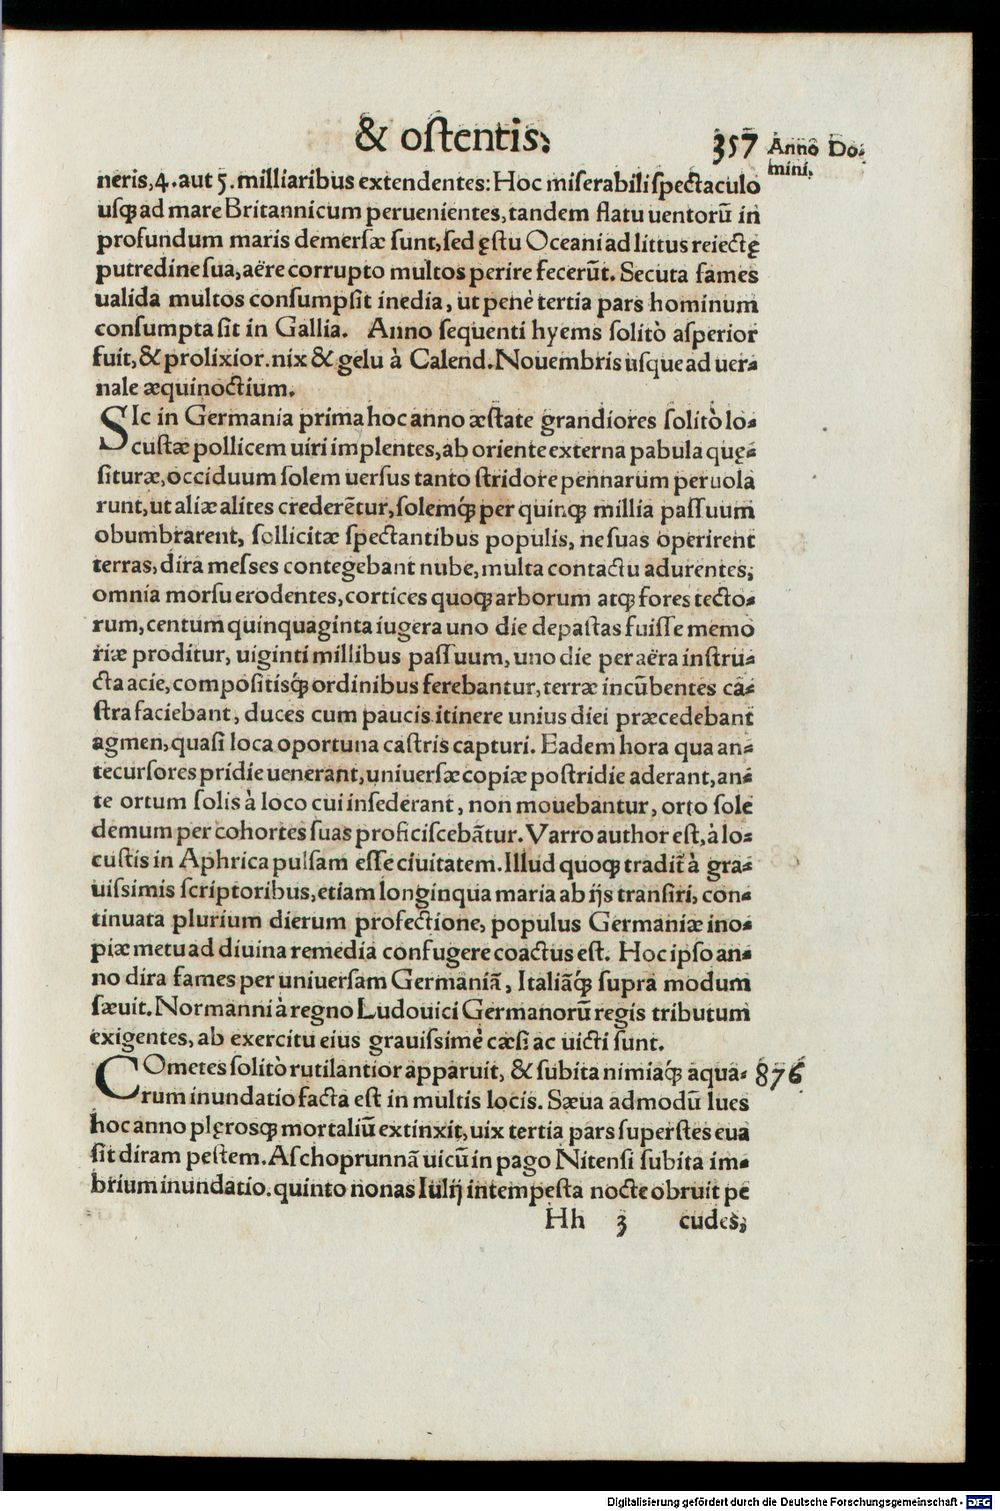 & oſtentis. 357 Anno Do-
mini.
neris, 4. aut 5. milliaribus extendentes: Hoc miſerabili ſpectaculo
uſq; ad mare Britannicum peruenientes, tandem flatu uentorū in
profundum maris demerſæ ſunt, ſed ęſtu Oceani ad littus reiectę
putredine ſua, aëre corrupto multos perire fecerūt. Secuta fames
ualida multos conſumpſit inedia, ut penè tertia pars hominum
conſumpta ſit in Gallia. Anno ſequenti hyems ſolitò aſperior
fuit, & prolixior. nix & gelu à Calend. Nouembris uſque ad uer-
nale æquinoctium.
SIc in Germania prima hoc anno æſtate grandiores ſolitò lo-
cuſtæ pollicem uiri implentes, ab oriente externa pabula quę-
ſituræ, occiduum ſolem uerſus tanto ſtridore pennarum peruola
runt, ut aliæ alites crederētur, ſolemq́; per quinq; millia paſſuum
obumbrarent, ſollicitæ ſpectantibus populis, ne ſuas operirent
terras, dira meſſes contegebant nube, multa contactu adurentes,
omnia morſu erodentes, cortices quoq; arborum atq; fores tecto-
rum, centum quinquaginta iugera uno die depaſtas fuiſſe memo
riæ proditur, uiginti millibus paſſuum, uno die per aëra inſtru-
cta acie, compoſitisq́; ordinibus ferebantur, terræ incūbentes cā-
ſtra faciebant, duces cum paucis itinere unius diei præcedebant
agmen, quaſi loca oportuna caſtris capturi. Eadem hora qua an-
tecurſores pridie uenerant, uniuerſæ copiæ poſtridie aderant, an-
te ortum ſolis à loco cui inſederant, non mouebantur, orto ſole
demum per cohortes ſuas proficiſcebātur. Varro author eſt, à lo-
cuſtis in Aphrica pulſam eſſe ciuitatem. Illud quoq; tradit̄ à gra-
uiſsimis ſcriptoribus, etiam longinqua maria ab ijs tranſiri, con-
tinuata plurium dierum profectione, populus Germaniæ ino-
piæ metu ad diuina remedia confugere coactus eſt. Hoc ipſo an-
no dira fames per uniuerſam Germaniā, Italiāq́; ſupra modum
ſæuit. Normanni à regno Ludouici Germanorū regis tributum
exigentes, ab exercitu eius grauiſsimè cæſi ac uicti ſunt.
COmetes ſolitò rutilantior apparuit, & ſubita nimiaq́; aqua- 876
rum inundatio facta eſt in multis locis. Sæua admodū lues
hoc anno plęrosq; mortaliū extinxit, uix tertia pars ſuperſtes eua
ſit diram peſtem. Aſchoprunnā uicū in pago Nitenſi ſubita im-
brium inundatio. quinto nonas Iulij intempeſta nocte obruit pe
Hh 3 cudes,
Digitalisierung gefördert durch die Deutsche Forschungsgemeinschaft - DFG